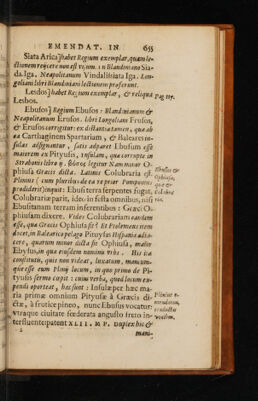 EMENDAT. IN 655
Siata Arica] habet Regium exemplar, quam le-
ctionem reijcere non est verum. in Blandiniano Sia-
da Iga. Neapolitanum Vindalisiata Iga. Lon-
goliani libri Blandiniani lectionem præferunt.
Lesdos] habet Regium exemplar, & reliqua
Lesbos.
Pag 117.
Ebusos] Regium Ebusos: Blandinianum &
Neapolitanum Erusos. libri Longoliani Frusos,
& Erusos corrigitur: ex distantia tamen, quæ ab
ea Carthaginem Spartariam, & Baleares in-
sulas adsignatur, satis adparet Ebusum esse
maiorem ex Pityusis, Insulam, quæ corrupte in
Strabonis libro
legitur Nam nunc O-
phiusa Græcis dicta. Latine Colubraria est.
Plinius (cum pluribus de ea re præter Pomponium
prodiderit) inquit: Ebusi terra serpentes fugat,
Colubrariæ parit, ideo in festa omnibus, nisi
Ebusitanam terram inferentibus: Græci O-
phiusam dixere. Vides Colubrariam eandem
esse, quæ Græcis Ophiusa sit? Et Ptolemæus item
docet, in Balearico pelago Pityusas Hispaniæ adia-
cere, quarum minor dicta sit Ophiusa, maior
Ebysus, in qua eiusdem nominis vrbs. His ita
constitutis, quis non videat, lexatum, mancum-
que esse eum Plinij locum, in quo primo de Pi-
tyusis sermo capit: cuius verba, quod locus ex-
pendi oporteat, hæc sunt: Insulæ per hæc ma-
ria primæ omnium Pityusæ à Græcis di-
ctæ, à frutice pineo, nunc Ebusus vocatur:
vtraque ciuitate fœderata angusto freto in-
terfluente patent XLII. M. P. Duplex hic &
mani-
Ebusus &
Ophiusa,
quæ &
Colubra
ria.
Plinius e-
mendatus,